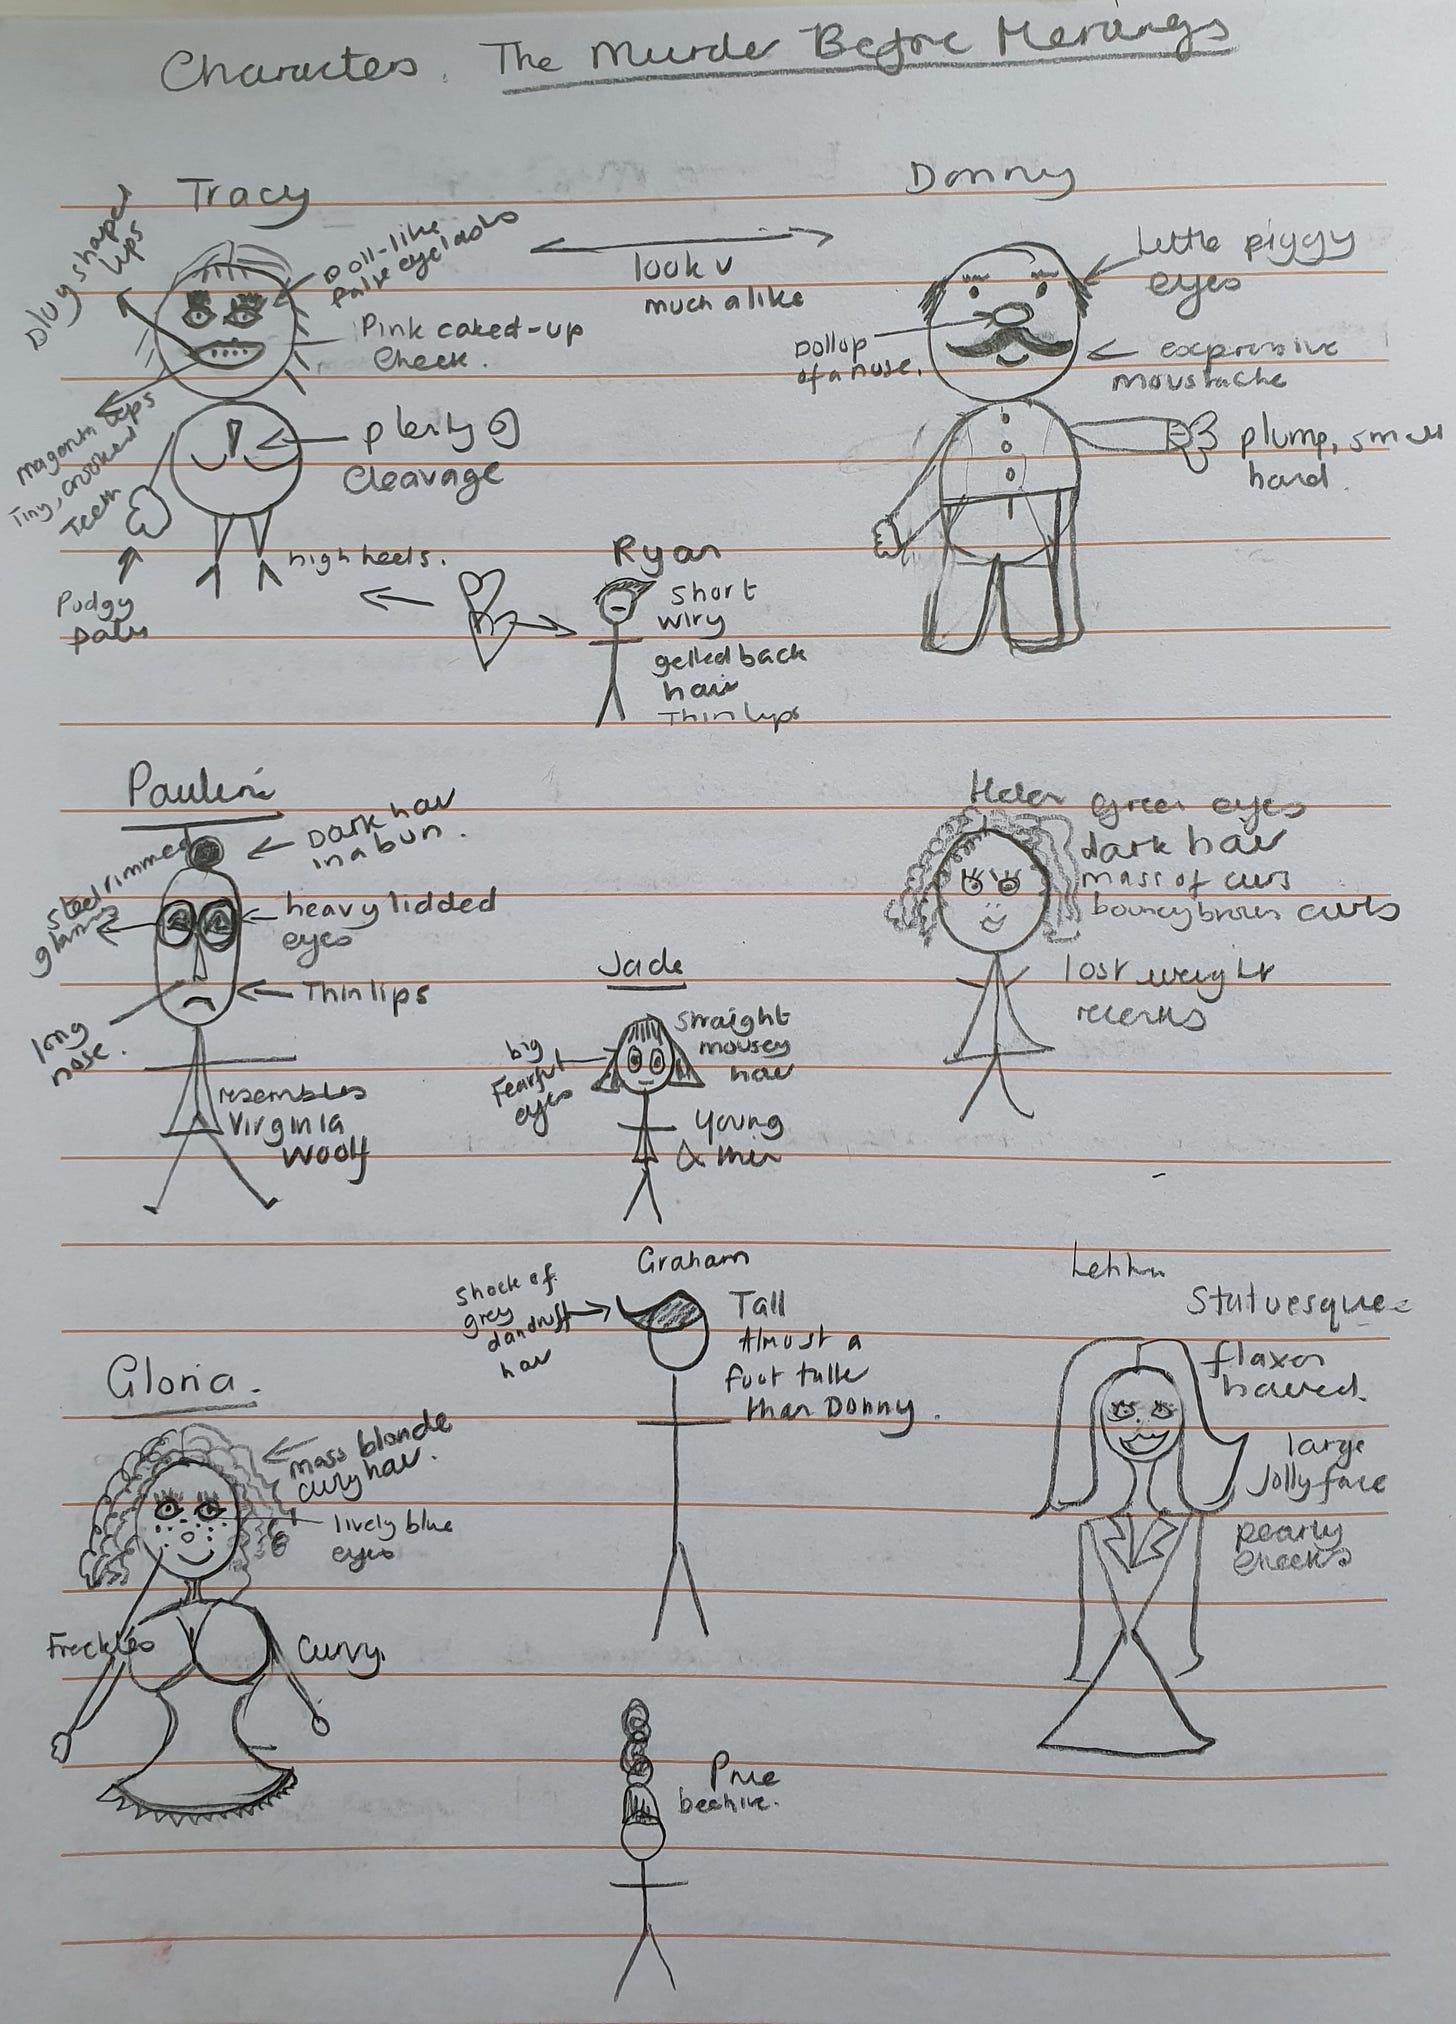 Characters. The Murder Before Merangs
Tracy
Slug shaped
lips
Doll-like
false eyelashes
Pink caked-up
cheek.
magenta lips
Tiny, crooked
teeth
plenty of
cleavage
Pudgy
paws
high heels.
look v
much alike
Donny
Little piggy
eyes
Dollop
of a nose.
expressive
moustache
plump, small
hand.
Ryan
Short
wiry
gelled back
hair
Thin lips
Pauline
Dark hair
in a bun.
steel rimmed
glasses
heavy lidded
eyes
Thin lips
long
nose.
resembles
Virginia
Woolf
Jade
big
Fearful
eyes
Straight
mousey
hair
Young
& thin
Helen
green eyes
dark hair
mass of curls
bouncy brown curls
lost weight
recently
Gloria.
mass blonde
curly hair.
lively blue
eyes
Freckles
Curvy.
Graham
Shock of
grey
dandruff
hair
Tall
Almost a
foot taller
than Donny.
Statuesque
flaxen
haired.
large
Jolly face
pearly
cheeks
Prue
beehive.